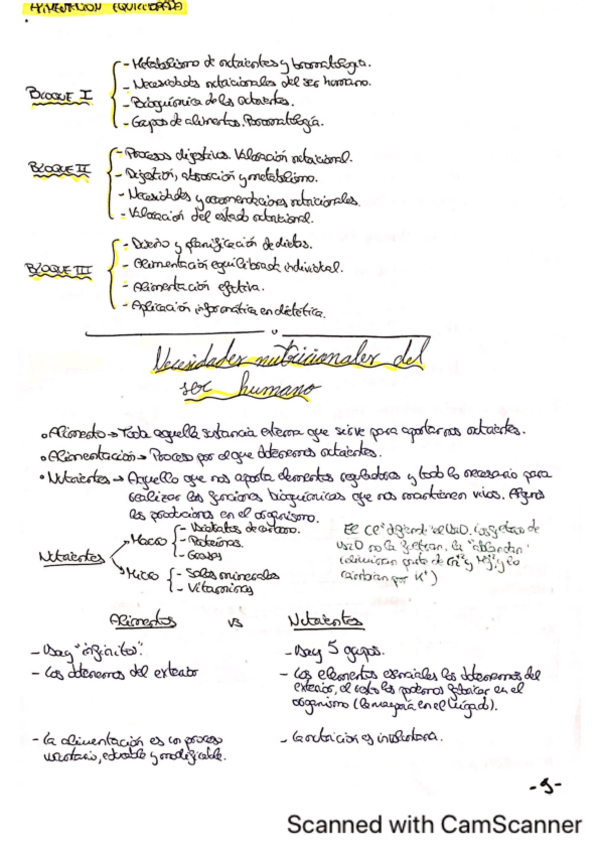 ALIMENTACIÓN EQUILIBRADA
BLOQUE I
- Metabolismo de nutrientes y bromatología.
- Necesidades nutricionales del ser humano.
- Bioquímica de los nutrientes.
- Grupos de alimentos. Bromatología.
BLOQUE II
- Procesos digestivos. Valoración nutricional.
- Digestión, absorción y metabolismo.
- Necesidades y recomendaciones nutricionales.
- Valoración del estado nutricional.
BLOQUE III
- Diseño y planificación de dietas.
- Alimentación equilibrada individual.
- Alimentación
- Aplicación informática en dietética.
Necesidades nutricionales del
ser humano
• Alimento → Toda aquella sustancia externa que sirve para aportarnos nutrientes.
• Alimentación → Proceso por el que obtenemos nutrientes.
• Nutrientes → Aquello que nos aporta elementos reguladores y todo lo necesario para
realizar las funciones bioquímicas que nos mantienen vivos. Algunos
los producimos en el organismo.
Nutrientes
Macro
- Hidratos de carbono.
- Proteínas.
- Grasas
Micro
- Sales minerales
- Vitaminas
El Cl⁻
H₂O no la "ablandan"
parte de Ca²⁺ y Mg²⁺ y lo
cambian por K⁺)
Alimentos vs Nutrientes
- Hay "infinitos".
- Los obtenemos del exterior
- La alimentación es un proceso
voluntario, educable y modificable.
- Hay 5 grupos.
- Los elementos esenciales los obtenemos del
exterior, el resto los podemos fabricar en el
organismo (la mayoría en el hígado).
- La nutrición es involuntaria.
Scanned with CamScanner